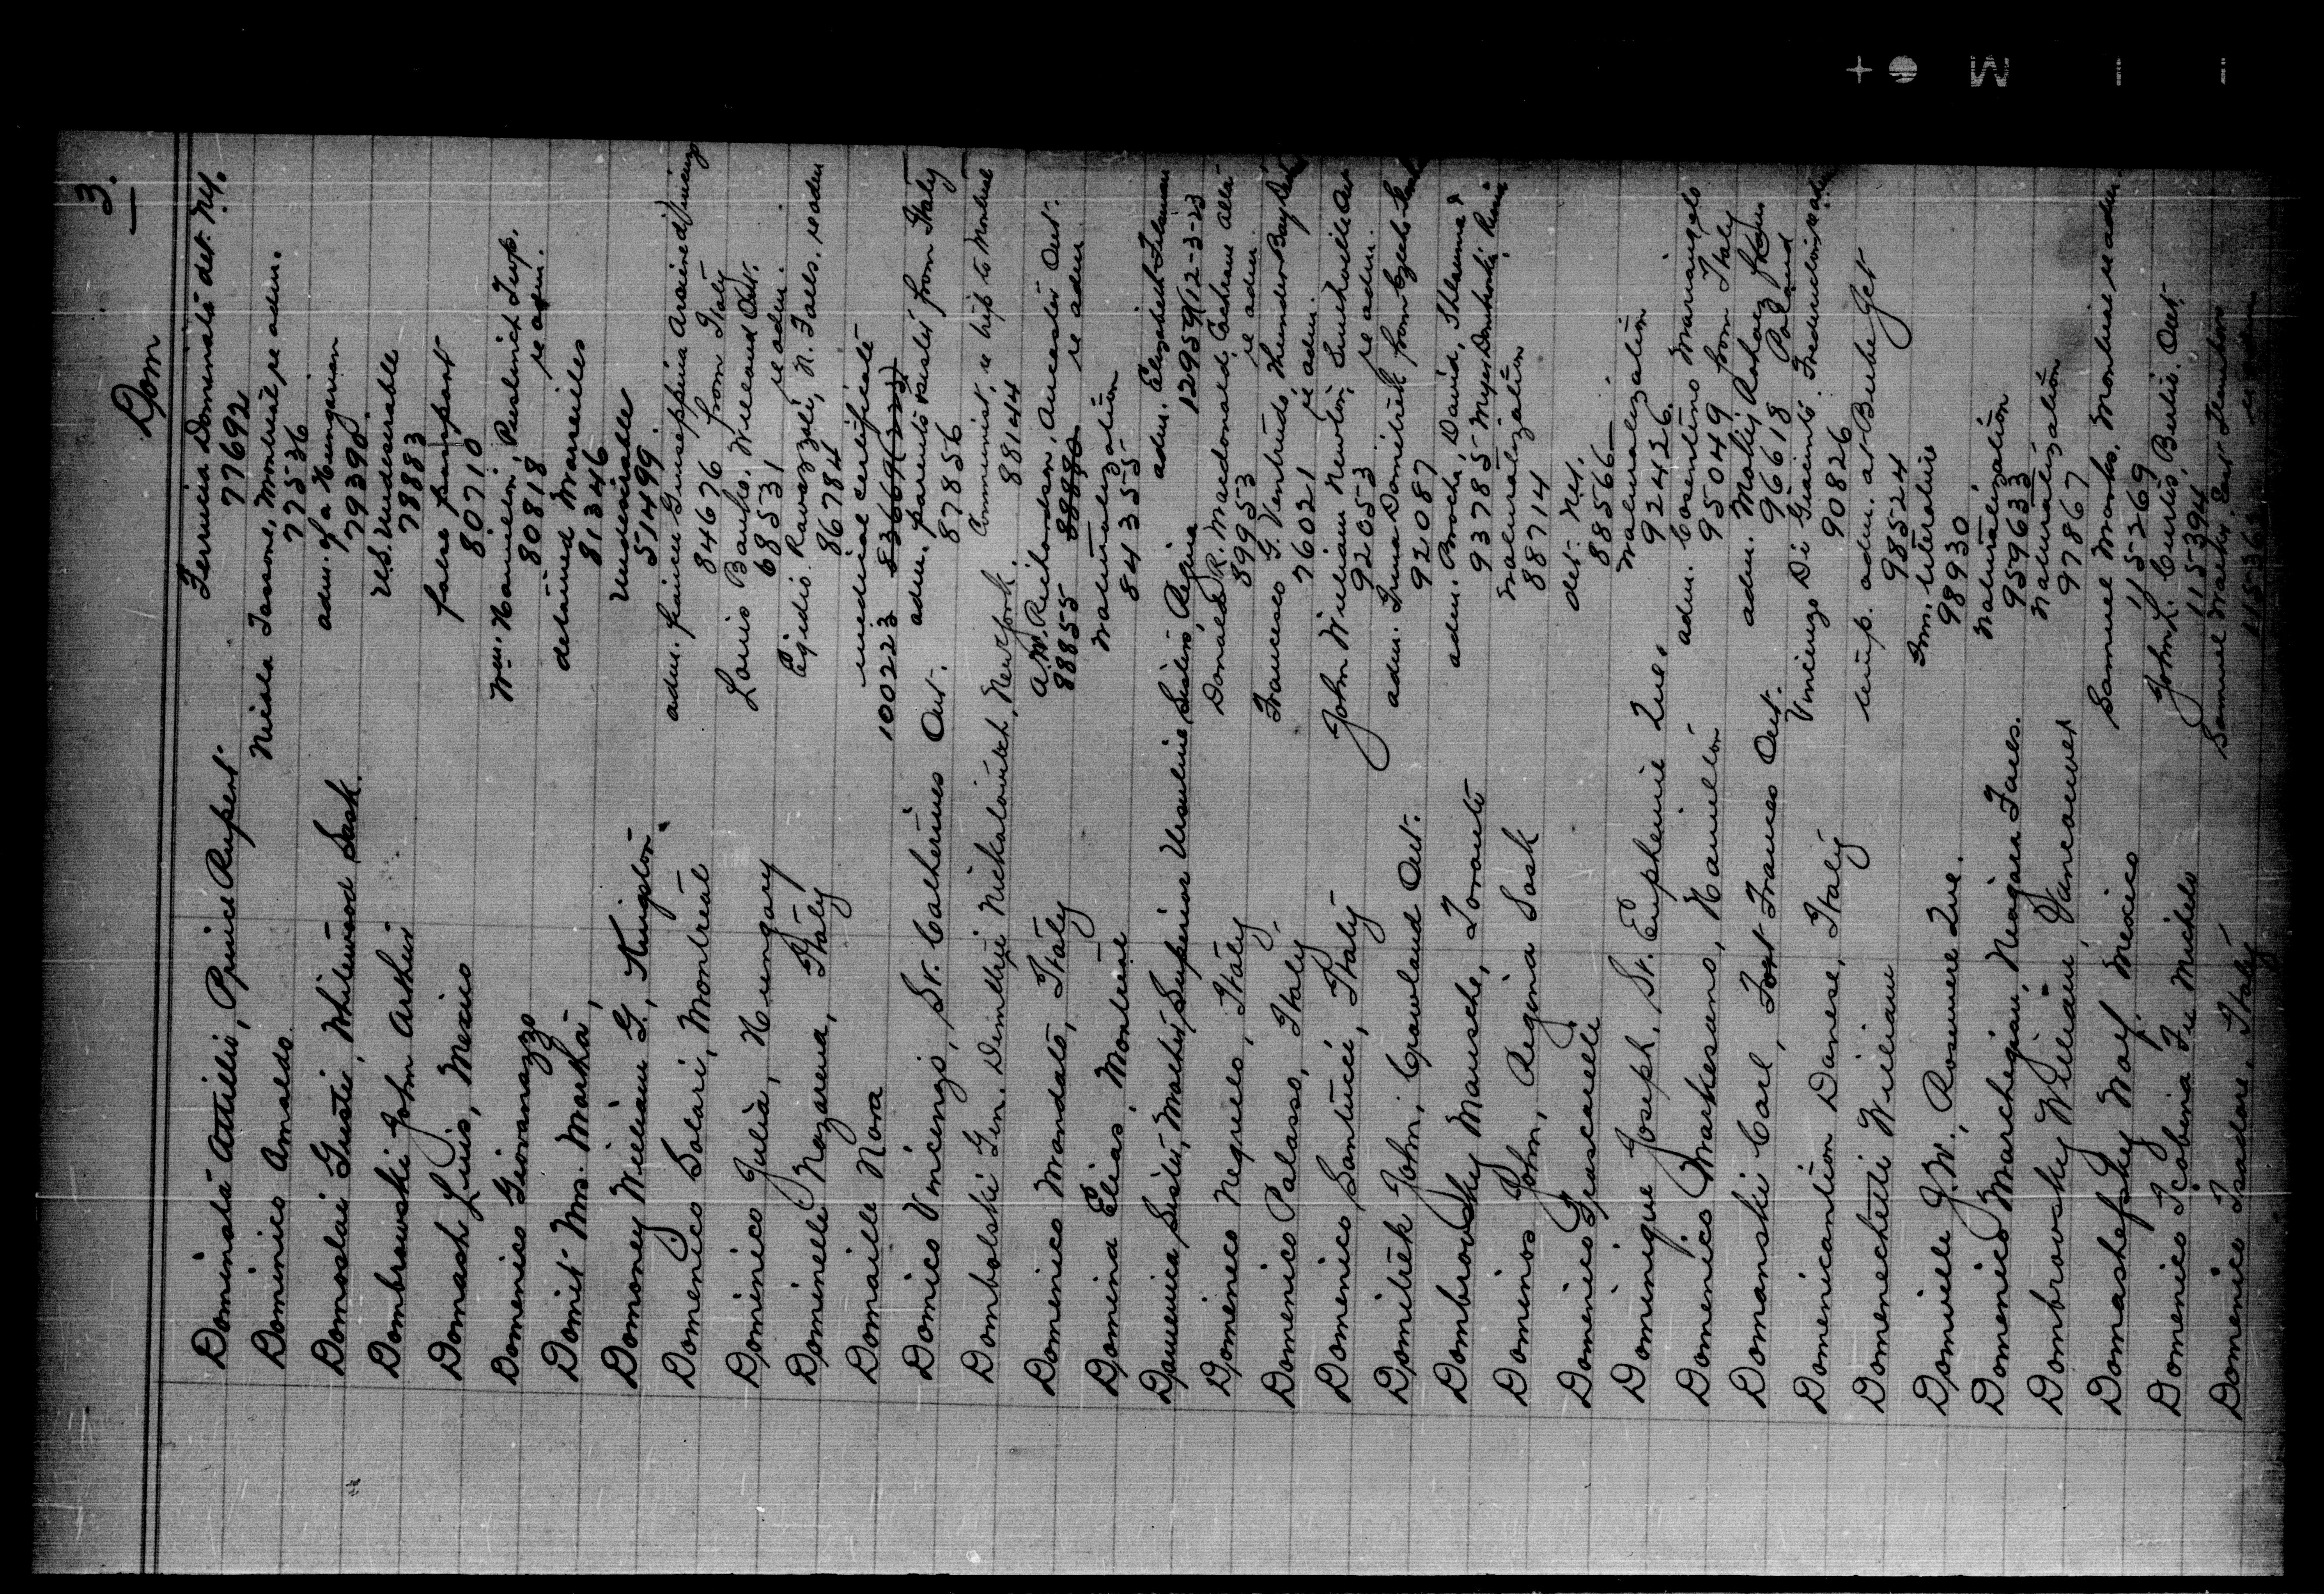 3.
Dom
Dominata Attilio, Prince Rupert
Ferrucia Dominato det. N.Y.
77692
Dominico Amaldo
Nicola Tassone, Montreal re adm.
77536
Domoslai Gustie, Whitewood Sask.
adm. of a Hungarian
79390
Dombrowski John Arthur
U.S. Undesirable
78883
Domash Luis, Mexico
false passport
80710
Domenico Giovanazzo
Wm. Hamilton, Puslinch Twp.
80818 re adm.
Domit Mrs. Martha,
detained Marseilles
81346
Domoney William G., Kingston
Undesirable
51499
Domenico Solari, Montreal
adm. fiancee Guiseppina
84676 from Italy
Dominico Julia, Hungary
Louis Banko, Welland Ont.
68531 re adm.
Dominelli Nazarena, Italy
Egidio Ravazzoli, N. Falls, re adm
86784
Domaille Nora
medical certificate
100223
Domico Vincenzo, St. Catherines Ont.
adm. parents & sister from Italy
87856
Dombolski Gen. Dimitry Nickolovitch, New York.
Communist, re trip to Montreal
88144
Domenico Mandato, Italy
A.W. Richardson, Ancaster Ont.
88855 re adm
Domina Elias, Montreal
naturalization
841355
Domenica Sister, Mother Superior Ursuline Sisters, Regina
adm. Elizabeth
12-3-23
Domeneco Negrelo, Italy
Donald R. Macdonald, Cochrane Alta
89953 re adm.
Domenico Palasso, Italy
Francesco G. Ventrudo Thunder Bay
76021 re adm.
Domenico Santucci, Italy
John William Newton, Smithville Ont
92053 re adm.
Domitrek John, Crowland Ont.
adm. Truma Domitrek from Czecho
92087
Dombrowsky Mausche, Toronto
adm. Brocha, David, &
93785 Meyer Dombrowski,
Dominos John, Regina Sask
naturalization
88714
Domenico Frascarelli
det. N.Y.
88566
Dominique Joseph, St. Euphemie Que.
naturalization
92426.
Domenico Markesano, Hamilton
adm. Cosentino Mariangelo
95049 from Italy
Domanski Carl, Fort Frances Ont.
adm. Matij from
96618 Poland
Domenicantion Danese, Italy
Vincenzo Di Giacinto, Fredericton re adm
90826
Domenechetti William
temp. adm. at
98524
Domville J.W., Rosemere Que.
Imm. literature
98930
Domenico Marchegian, Niagara Falls.
naturalization
959633
Dombrowsky William Vancouver
Naturalization
97867
Domashefsky Wolf, Mexico
Samuel Marks, Montreal re adm.
115269
Domenico Icobina Fu Michele
John L. Curtis, Berlin. Ont.
115394
Domenico Isadore, Italy
Samuel East Hamilton